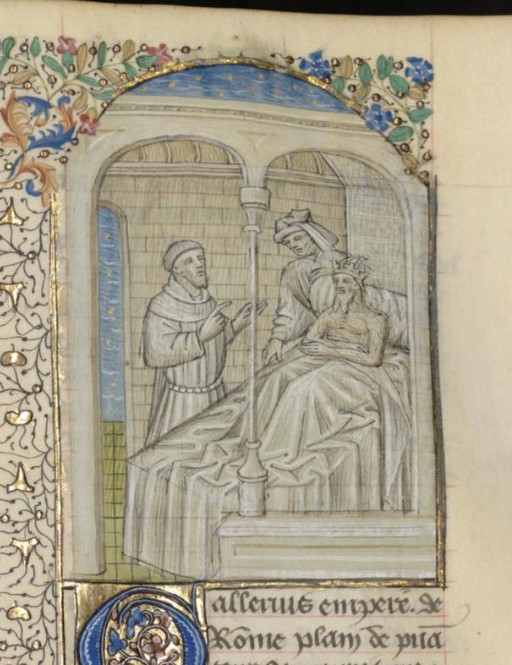 Gallerius empere. de
Rome plain de pua